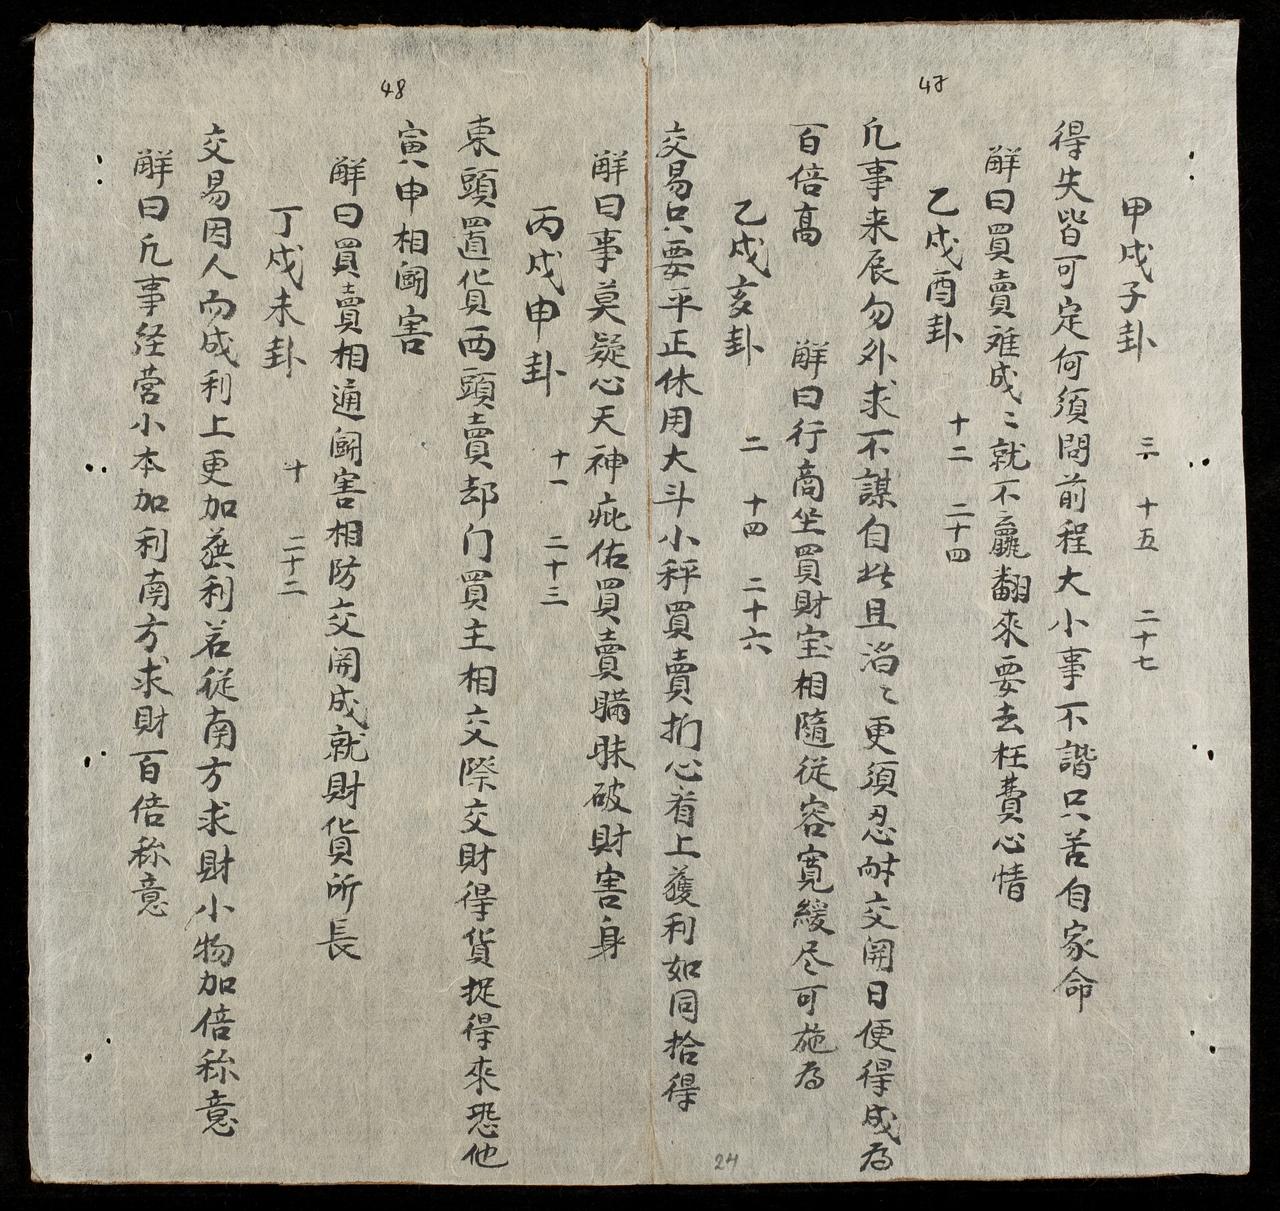 47
甲戍子卦 三 十五 二十七
得失皆可定何須問前程大小事不諧只苦自家命
觧曰買賣难成〻就不贏翻來要去枉費心情
乙戍酉卦 十二 二十四
凢事来辰勿外求不謀自此且滔〻更須忍耐交開日便得成為
百倍高 觧曰行商坐買財宝相隨從容寛緩尽可施為
乙戍亥卦 二 十四 二十六
交易只要平正休用大斗小秤買賣捫心看上獲利如同拾得
48
觧曰事莫疑心天神庇佑買賣瞞昧破財害身
丙戍申卦 十一 二十三
東頭置貨西頭賣却门買主相交際交財得貨捉得來恐他
寅申相鬭害
觧曰買賣相通鬭害相防交開成就財貨所長
丁戍未卦 十 二十二
交易因人而成利上更加無利若従南方求財小物加倍称意
觧曰凢事经营小本加利南方求財百倍称意
24